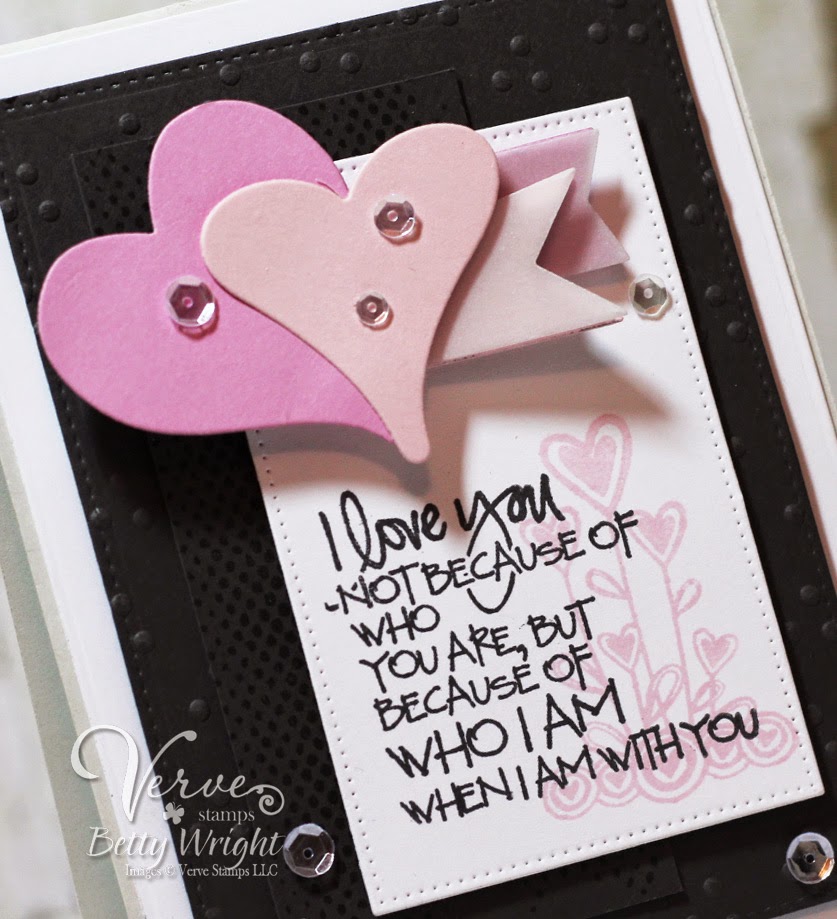 I love you
-NOT BECAUSE OF
WHO
YOU ARE, BUT
BECAUSE OF
WHO I AM
WHEN I AM WITH YOU
Verve
stamps
Betty Wright
Images © Verve Stamps LLC